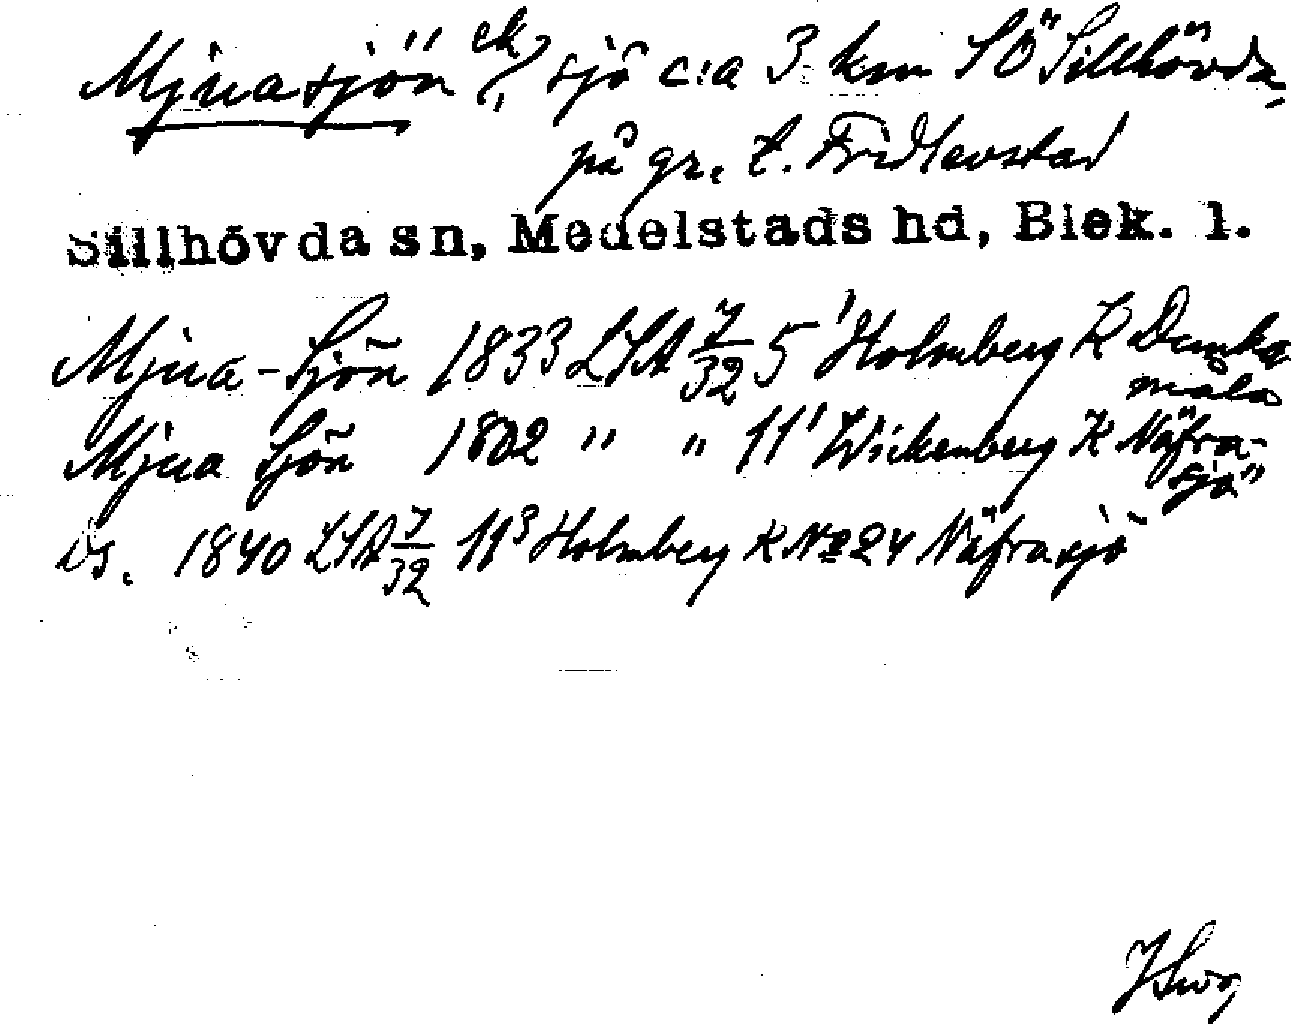 Mjuasjön ek/" sjö c:a 3 km SÖ Sillhövda,
på gr. t. Fridlevstad
Sillhövda sn, Medelstads hd, Blek. l.
Mjua-Sjön 1833 LSA 7/32 5¹ Holmberg K Dunka
mala
Mjua Sjön 1802 " " 11¹ Wickenberg K Näfra-
sjö"
Ds. 1840 LSA 7/32 11³ Holmberg K No 24 Näfrasjö